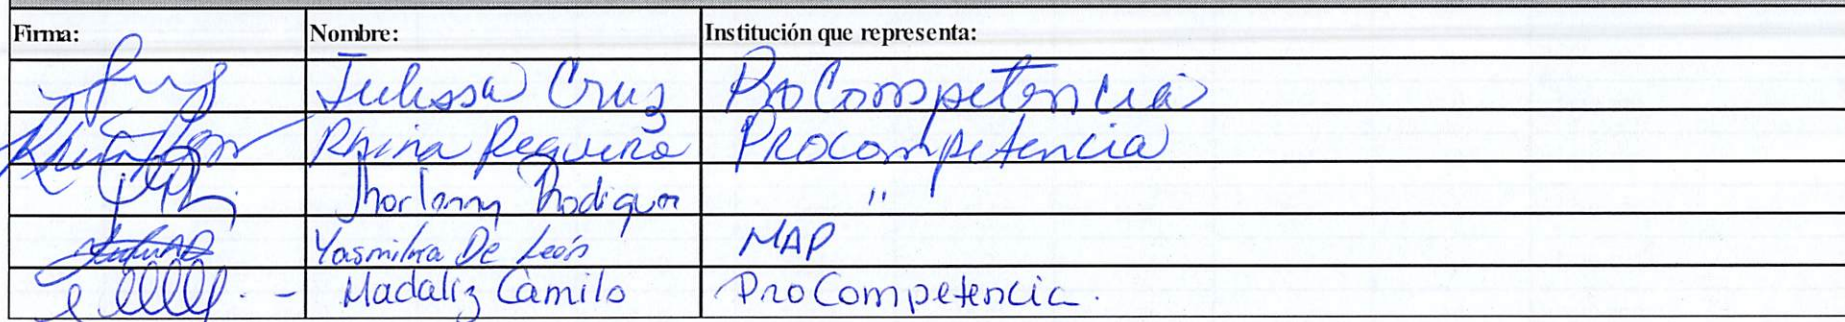 Firma: Nombre: Institución que representa:
Julissa Cruz ProCompetencia
Rhina Requena Procompetencia
Jhorlenny Rodriguez "
Yasmilka De León MAP
Madaliz Camilo ProCompetencia.